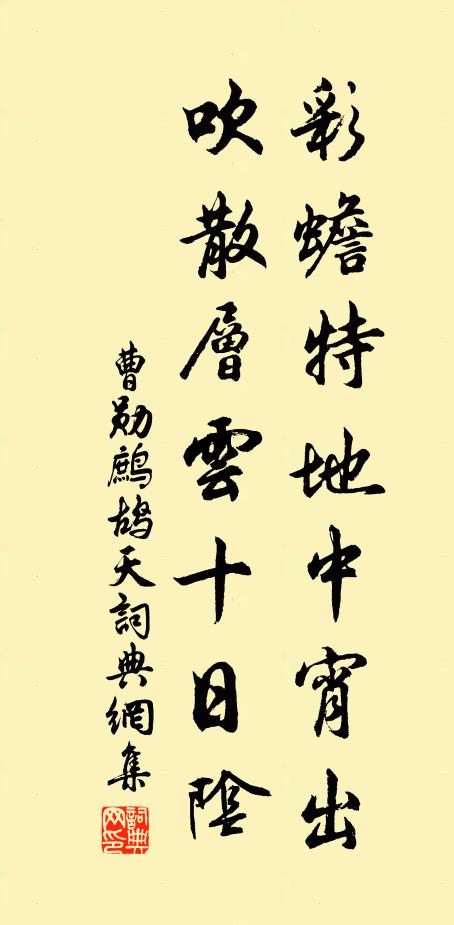 彩蟾特地中宵出
吹散層雲十日陰
曹勛鷓鴣天詞典網集
詞典网印